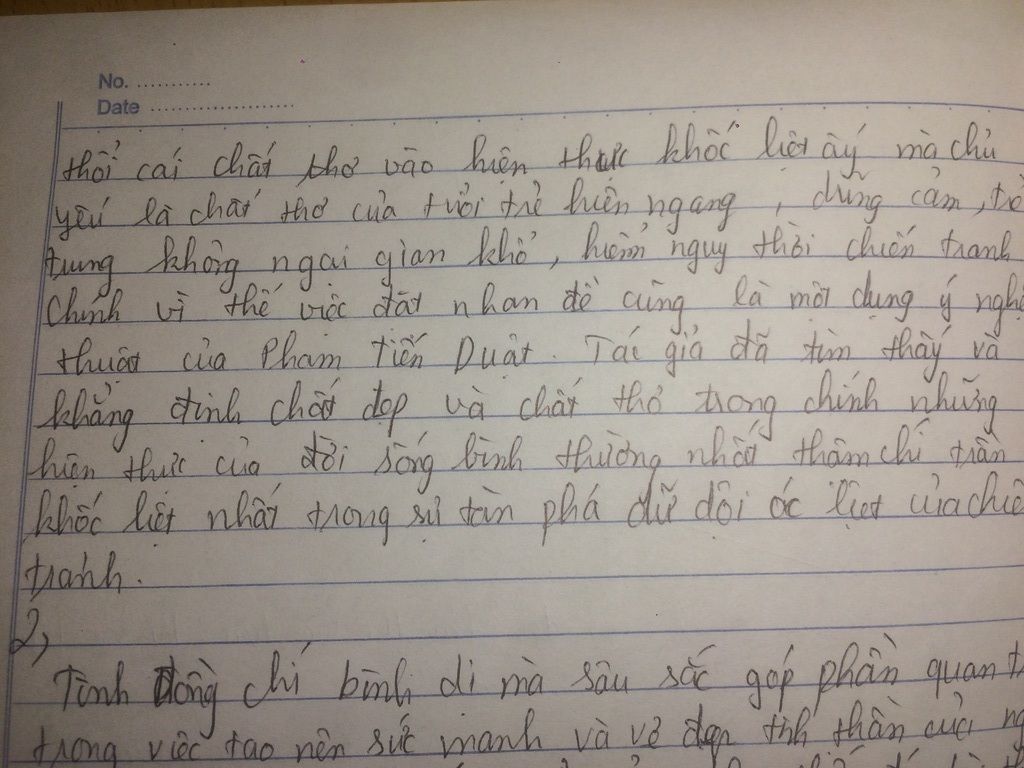 No. ...........
Date ......................
thổi cái chất thơ vào hiện thực khốc liệt ấy mà chủ
yếu là chất thơ của tuổi trẻ hiên ngang, dũng cảm, trẻ
trung không ngại gian khổ, hiểm nguy thời chiến tranh
Chính vì thế việc đặt nhan đề cũng là một dụng ý nghệ
thuật của Phạm Tiến Duật. Tác giả đã tìm thấy và
khẳng định chất đẹp và chất thơ trong chính những
hiện thực của đời sống bình thường nhất thậm chí trần
khốc liệt nhất trong sự tàn phá dữ dội ác liệt của chiế
tranh.
2,
Tình đồng chí bình dị mà sâu sắc góp phần quan tr
trong việc tạo nên sức mạnh và vẻ đẹp tinh thần của ng